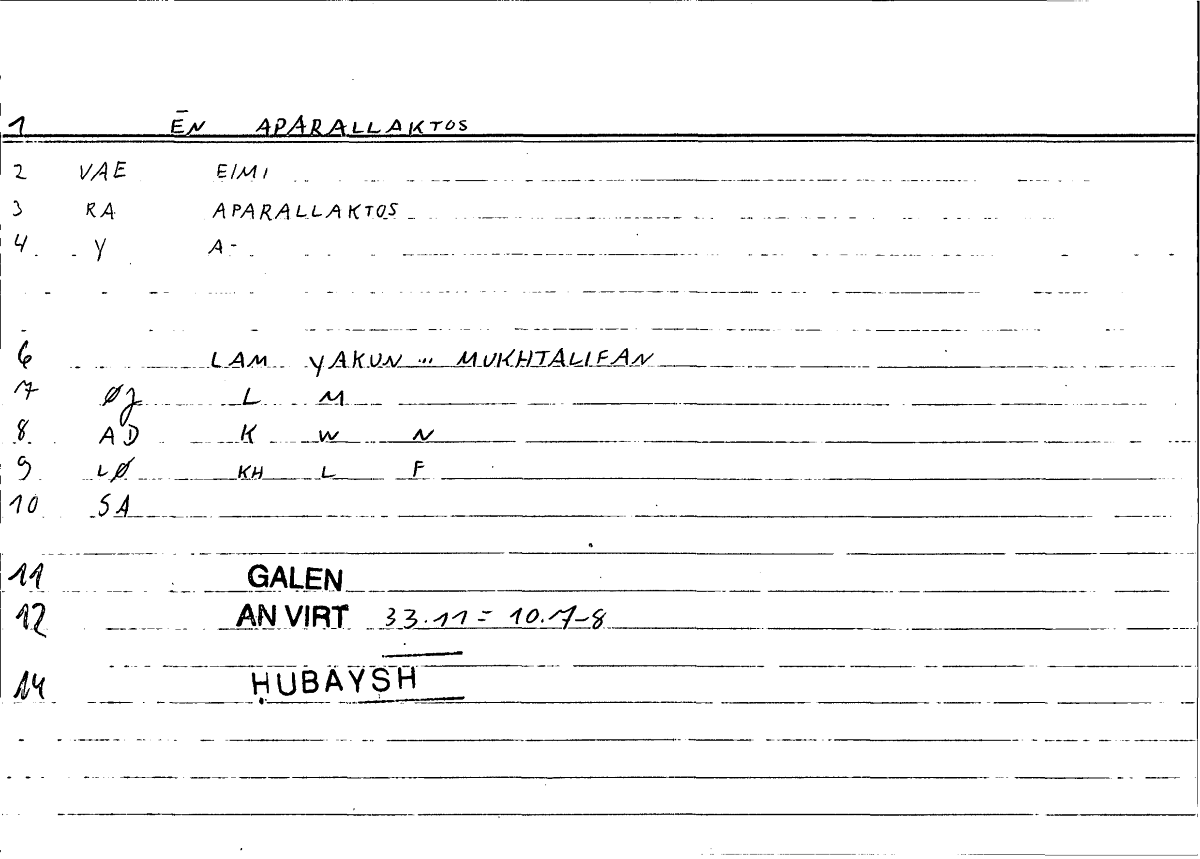 1 ĒN APARALLAKTOS
2 VAE EIMI
3 RA APARALLAKTOS
4 Y A-
6 LAM YAKUN ... MUKHTALIFAN
7 ØJ L M
8 AD K W N
9 LØ KH L F
10 SA
11 GALEN
12 AN VIRT 33.11 = 10.7-8
14 ḤUBAYSH